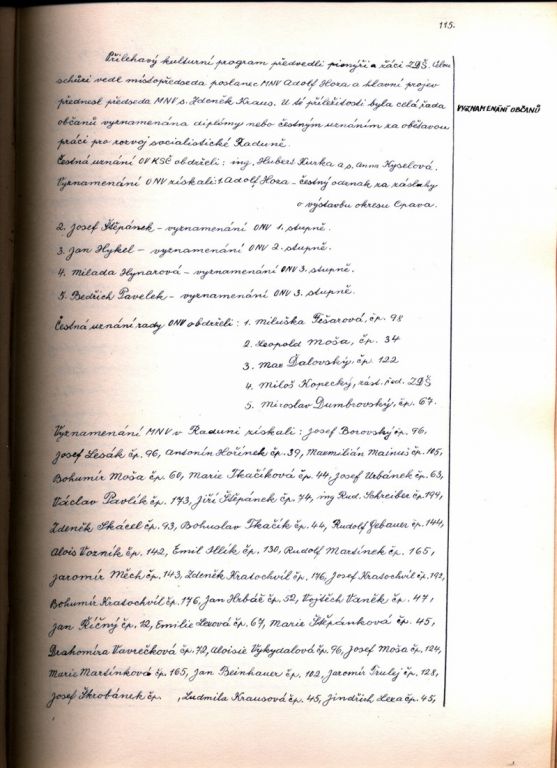 115.
Přiléhavý kulturní program předvedli pionýři a žáci ZDŠ. Celou
schůzi vedl místopředseda poslanec MNV Adolf Hora a hlavní projev
přednesl předseda MNV s. Zdeněk Kraus. U té příležitosti byla celá řada
VYZNAMENÁNÍ OBČANŮ
občanů vyznamenána diplomy nebo čestným uznáním za obětavou
práci pro rozvoj socialistické Raduně.
Čestná uznání OV KSČ obdrželi: ing. Hubert Kurka a s. Anna Kyselová.
Vyznamenání ONV získali: 1. Adolf Hora - čestný odznak za zásluhy
o výstavbu okresu Opava.
2. Josef Štěpánek - vyznamenání ONV 1. stupně.
3. Jan Hykel - vyznamenání ONV 2. stupně.
4. Milada Hynarová - vyznamenání ONV 3. stupně.
5. Bedřich Pavelek - vyznamenání ONV 3. stupně.
Čestná uznání rady ONV obdrželi: 1. Miluška Tešarová, čp. 98
2. Leopold Moša, čp. 34
3. Max Ďalovský, čp. 122
4. Miloš Kopecký, zást. řed. ZDŠ
5. Miroslav Dumbrovský, čp. 67.
Vyznamenání MNV v Raduni získali: Josef Borovský čp. 96,
Josef Lesák čp. 96, Antonín Hořínek čp. 39, Maxmilián Mainuš čp. 105,
Bohumír Moša čp. 60, Marie Tkačíková čp. 44, Josef Urbánek čp. 63,
Václav Pavlík čp. 173, Jiří Štěpánek čp. 74, ing Rud. Schreiber čp. 194,
Zdeněk Skácel čp. 93, Bohuslav Tkačík čp. 44, Rudolf Gebauer čp. 144,
Alois Vozník čp. 142, Emil Illík čp. 130, Rudolf Martínek čp. 165,
Jaromír Měch čp. 143, Zdeněk Kratochvíl čp. 176, Josef Kratochvíl čp. 192,
Bohumír Kratochvíl čp. 176, Jan Hrbáč čp. 52, Vojtěch Vaněk čp. 47,
Jan Říčný čp. 12, Emilie Lexová čp. 67, Marie Štěpánková čp. 45,
Drahomíra Vavrečková čp. 72, Aloisie Vykydalová čp. 96, Josef Moša čp. 124,
Marie Martínková čp. 165, Jan Beinhauer čp. 102, Jaromír Trulej čp. 128,
Josef Škrobánek čp. , Ludmila Krausová čp. 45, Jindřich Lexa čp. 45,